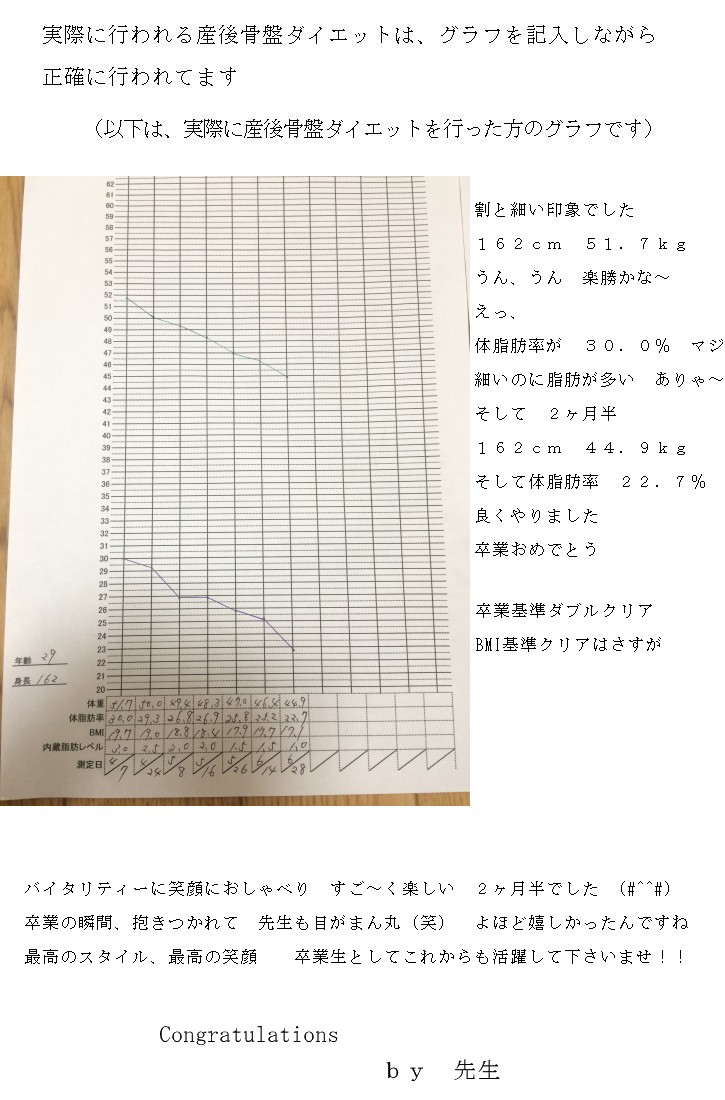 実際に行われる産後骨盤ダイエットは、グラフを記入しながら
正確に行われてます
（以下は、実際に産後骨盤ダイエットを行った方のグラフです）
62
61
60
59
58
57
56
55
54
53
52
51
50
49
48
47
46
45
44
43
42
41
40
39
38
37
36
35
34
33
32
31
30
29
28
27
26
25
24
23
22
21
20
年齢 29
身長 162
体重 51.7 50.0 49.4 48.3 47.0 46.4 44.9
体脂肪率 30.0 29.3 26.8 26.9 25.8 25.2 22.7
BMI 19.7 19.0 18.8 18.4 17.9 17.7 17.1
内蔵脂肪レベル 3.0 2.5 2.0 2.0 1.5 1.5 1.0
測定日 4/7 4/24 5/8 5/16 5/26 6/14 6/28
割と細い印象でした
１６２ｃｍ　５１．７ｋｇ
うん、うん　楽勝かな～
えっ、
体脂肪率が　３０．０％　マジ
細いのに脂肪が多い　ありゃ～
そして　２ヶ月半
１６２ｃｍ　４４．９ｋｇ
そして体脂肪率　２２．７％
良くやりました
卒業おめでとう
卒業基準ダブルクリア
BMI基準クリアはさすが
バイタリティーに笑顔におしゃべり　すご～く楽しい　２ヶ月半でした　(#^^#)
卒業の瞬間、抱きつかれて　先生も目がまん丸（笑）　よほど嬉しかったんですね
最高のスタイル、最高の笑顔　　卒業生としてこれからも活躍して下さいませ！！
Congratulations
ｂｙ　先生